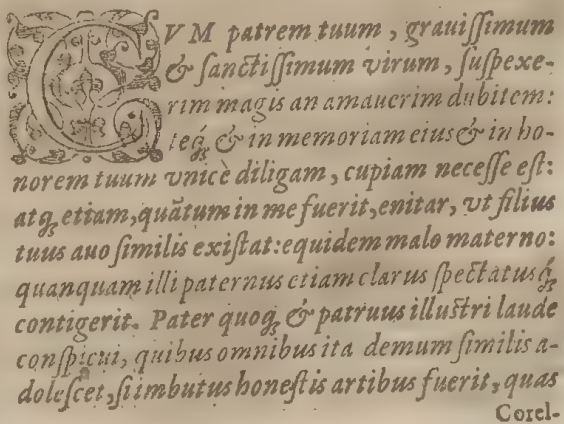 CVM patrem tuum, grauiſſimum
& ſanctiſſimum virum, ſuſpexe-
rim magis an amauerim dubitem:
teq́ꝫ & in memoriam eius & in ho-
norem tuum vnicè diligam, cupiam neceſſe eſt:
atqꝫ etiam, quātum in me fuerit, enitar, vt filius
tuus auo ſimilis exiſtat: equidem malo materno:
quanquam illi paternus etiam clarus ſpectatusq́ꝫ
contigerit. Pater quoqꝫ & patruus illuſtri laude
conſpicui, quibus omnibus ita demum ſimilis a-
doleſcet, ſi imbutus honeſtis artibus fuerit, quas
Corel-